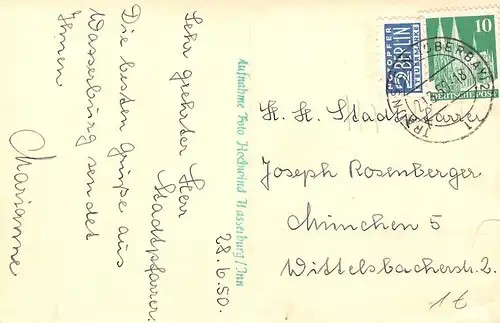 28.6.50.
Sehr geehrter Herr
Stadtpfarrer.
Die besten Grüße aus
Wasserburg sendet
Ihnen
Marianne
Aufnahme Foto Hochwind Wasserburg/Inn
NOTOPFER
2 BERLIN
STEUERMARKE
10
DEUTSCHE POST
Stadtpfarrer
Joseph Rosenberger
München 5
Wittelsbacherstr. 2.